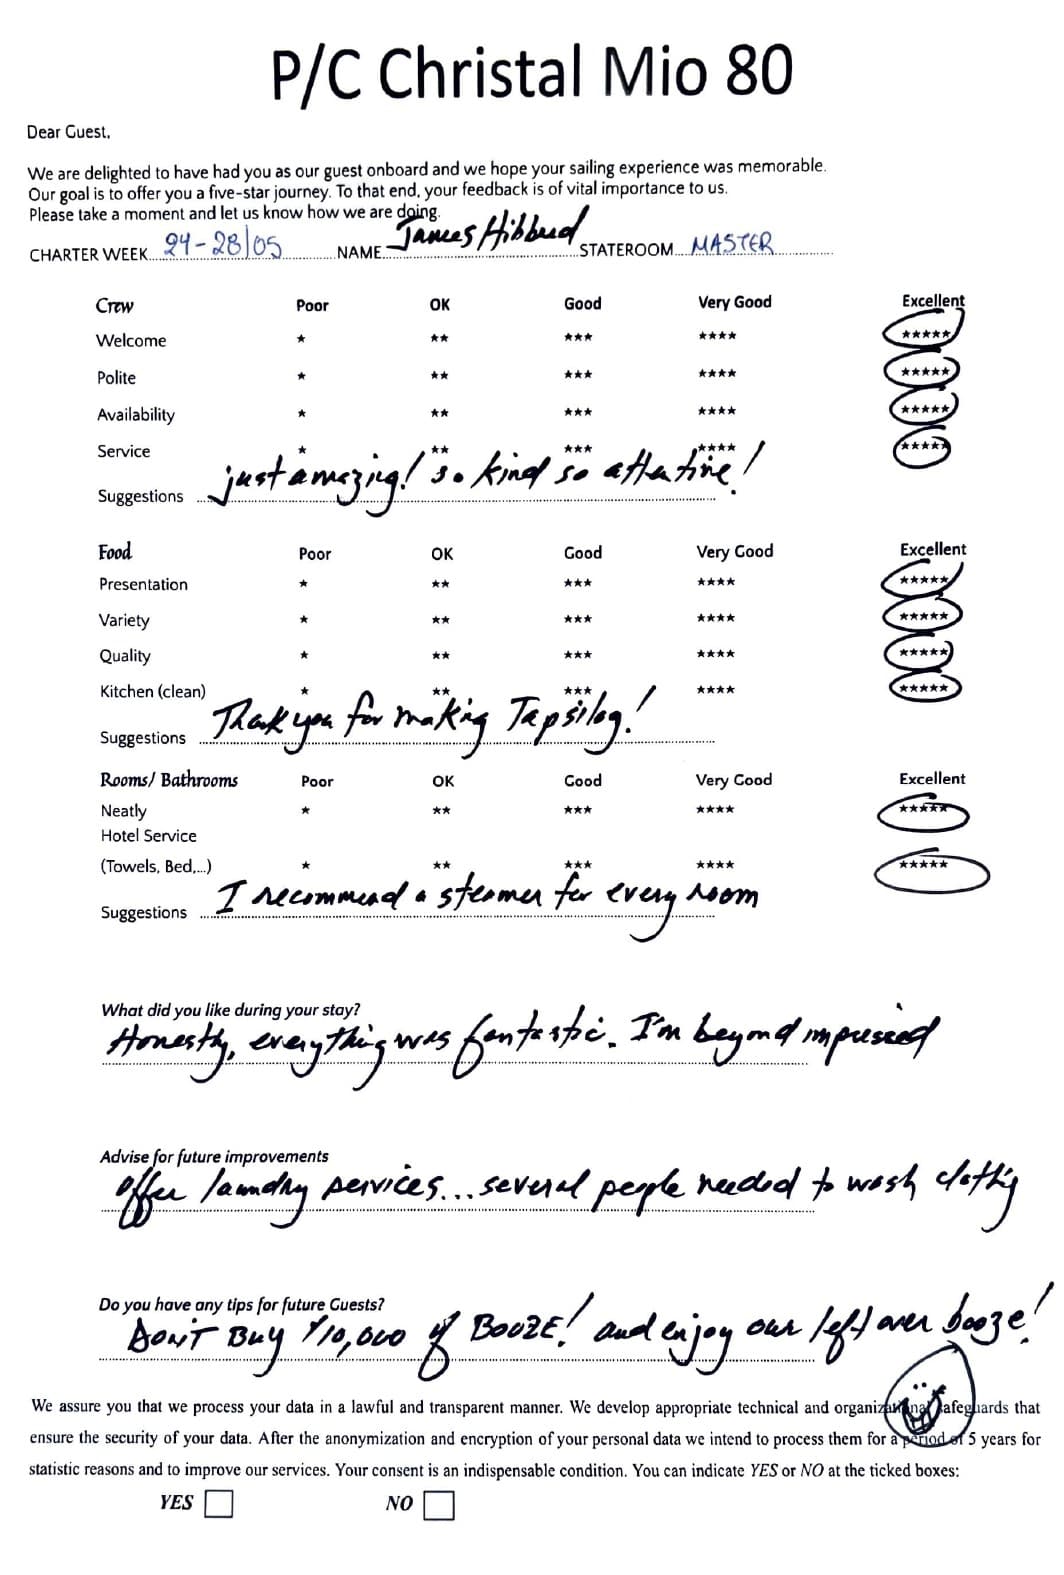 P/C Christal Mio 80
Dear Guest,
We are delighted to have had you as our guest onboard and we hope your sailing experience was memorable.
Our goal is to offer you a five-star journey. To that end, your feedback is of vital importance to us.
Please take a moment and let us know how we are doing.
CHARTER WEEK 24-28/05 NAME James Hibberd STATEROOM MASTER
Crew Poor OK Good Very Good Excellent
Welcome * ** *** **** *****
Polite * ** *** **** *****
Availability * ** *** **** *****
Service * ** *** **** *****
Suggestions just amazing! so kind so attentive!
Food Poor OK Good Very Good Excellent
Presentation * ** *** **** *****
Variety * ** *** **** *****
Quality * ** *** **** *****
Kitchen (clean) * ** *** **** *****
Suggestions Thank you for making Tapsilog!
Rooms/ Bathrooms Poor OK Good Very Good Excellent
Neatly * ** *** **** *****
Hotel Service
(Towels, Bed,...) * ** *** **** *****
Suggestions I recommend a steamer for every room
What did you like during your stay?
Honestly, everything was fantastic. I'm beyond impressed
Advise for future improvements
offer laundry services... several people needed to wash clothing
Do you have any tips for future Guests?
DON'T BUY $10,000 of BOOZE! and enjoy our left over booze!
We assure you that we process your data in a lawful and transparent manner. We develop appropriate technical and organizational safeguards that
ensure the security of your data. After the anonymization and encryption of your personal data we intend to process them for a period of 5 years for
statistic reasons and to improve our services. Your consent is an indispensable condition. You can indicate YES or NO at the ticked boxes:
YES NO